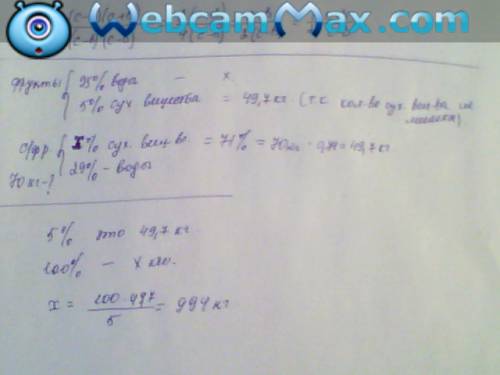 WebcamMax.com
фрукты { 95% вода — х
5% сух вещества = 49,7 кг (т.к кол-во сух. вещ-ва не
с/фр. { х% сух. вещ. во = 71% = 70кг · 0,71 = 49,7 кг
70 кг-? 29% - воды
5% это 49,7 кг.
100% — х кг.
х = 100·497 / 5 = 994 кг